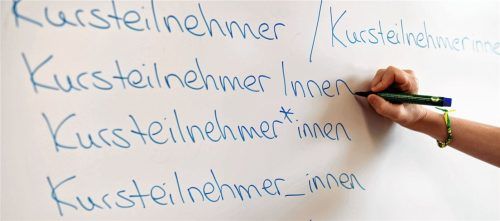 Kursteilnehmer / Kursteilnehmerinne
KursteilnehmerInnen
Kursteilnehmer*innen
Kursteilnehmer_innen